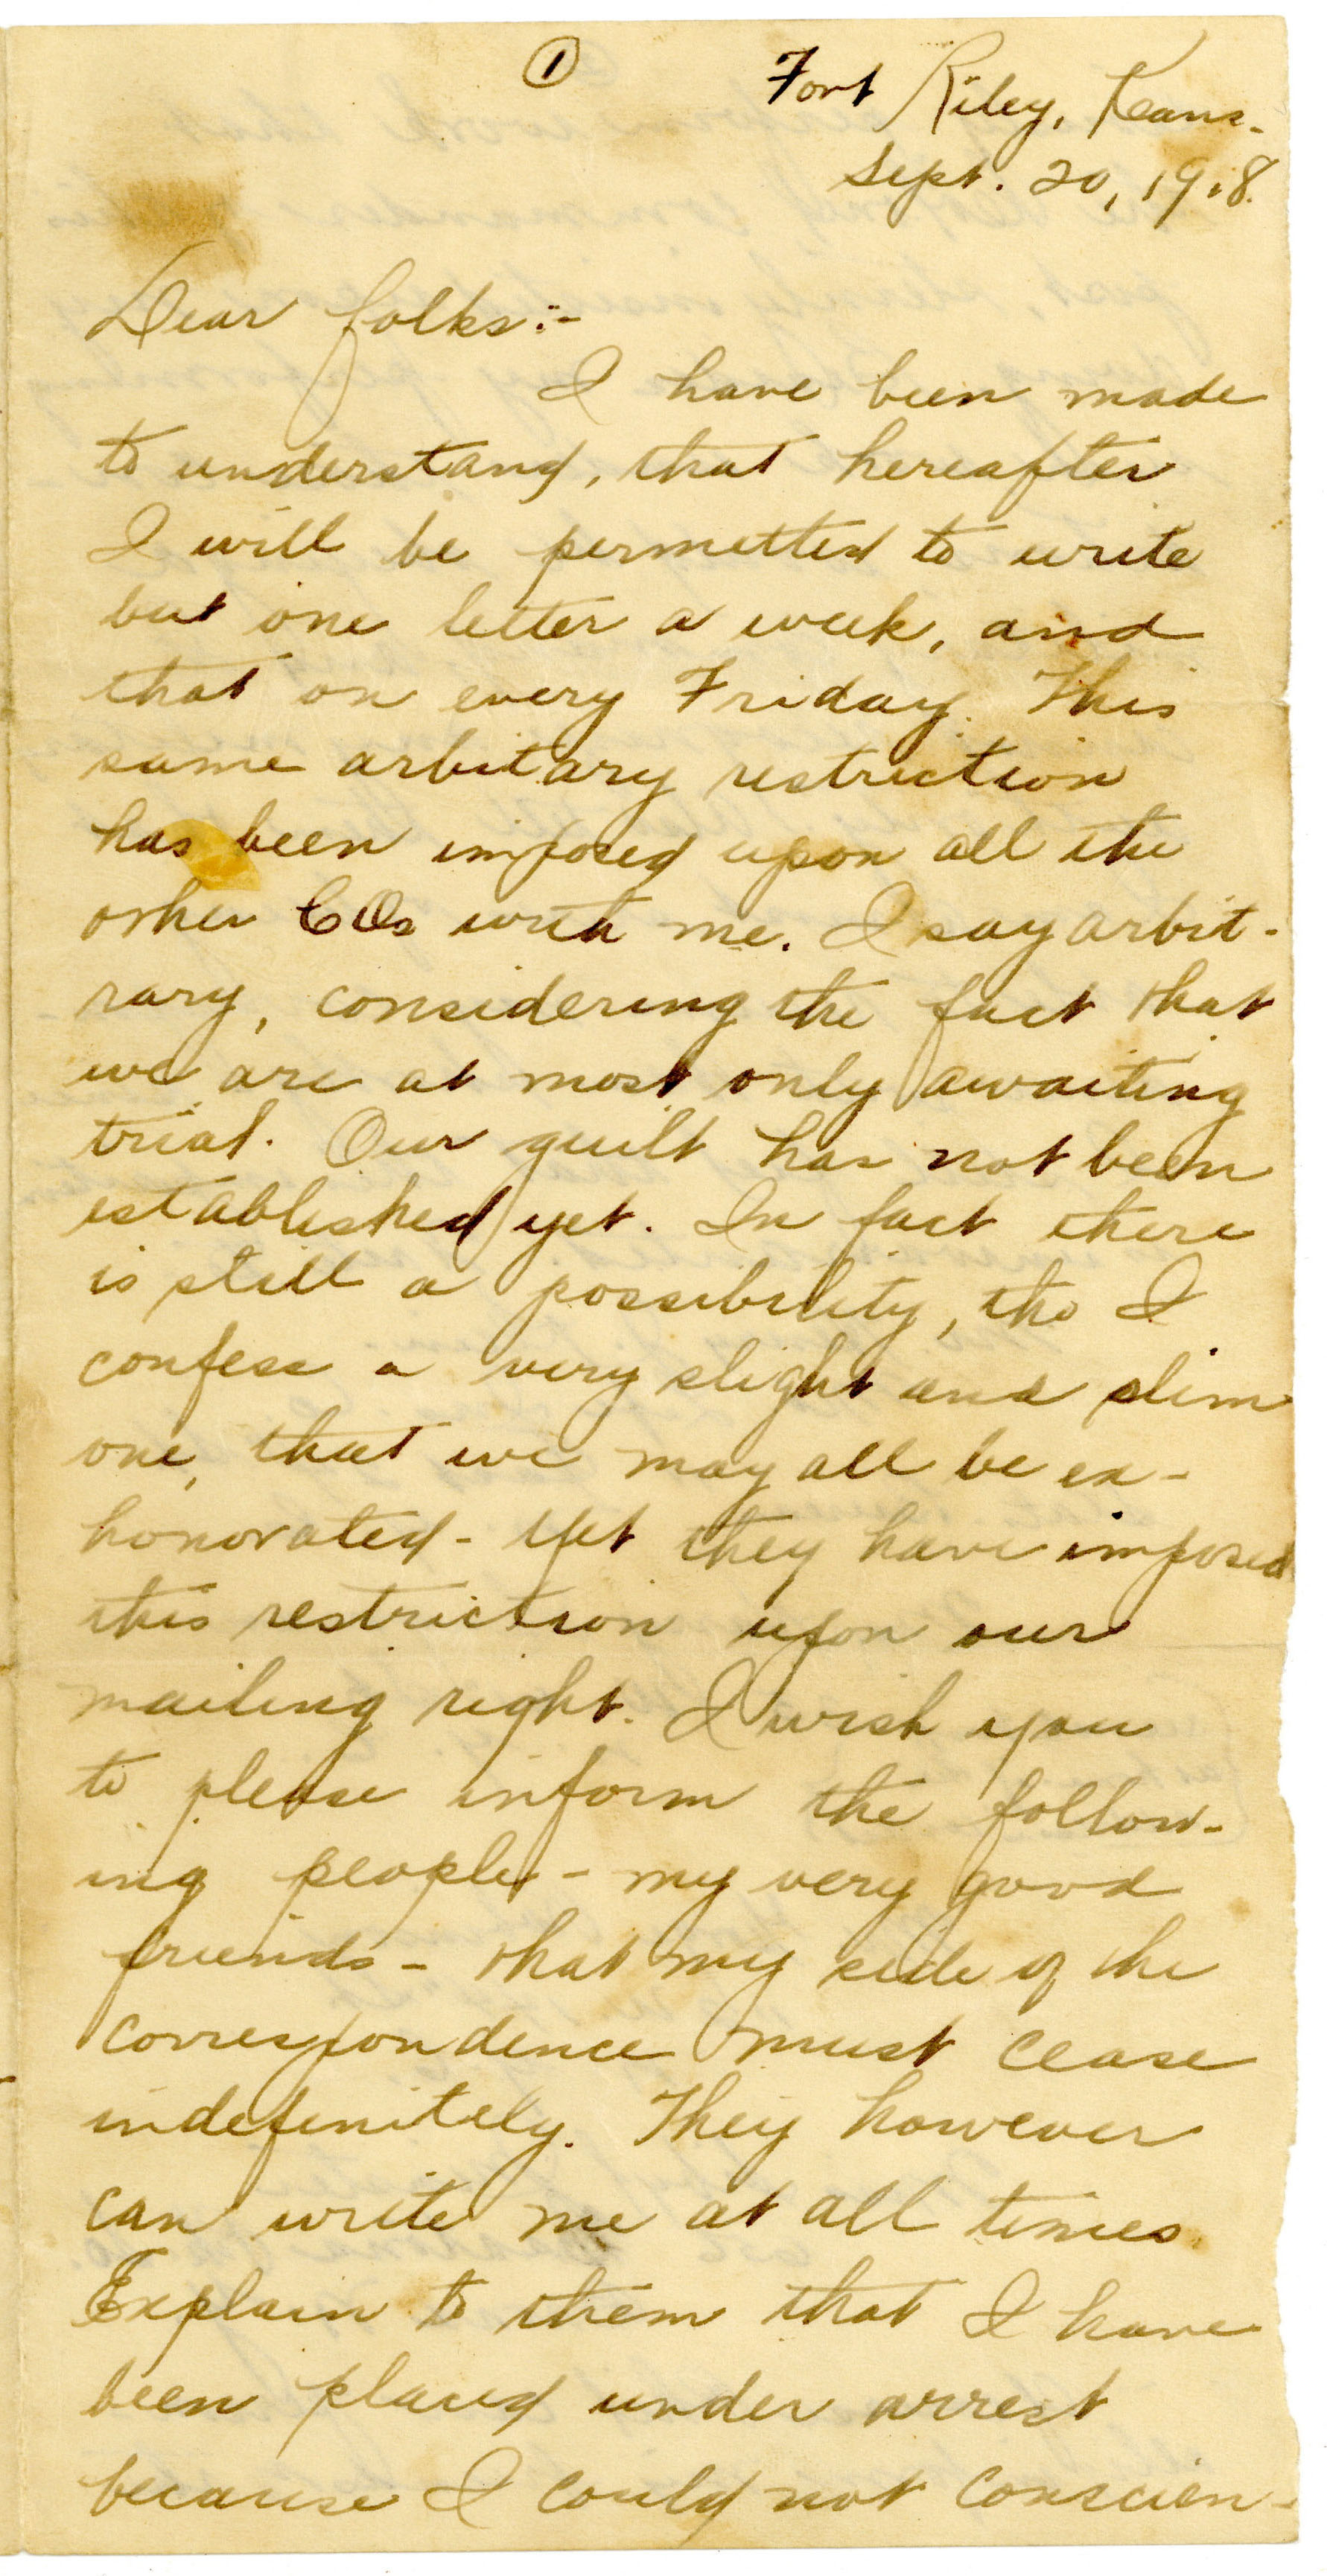 1
Fort Riley, Kans.
Sept. 20, 1918.
Dear folks:-
I have been made
to understand, that hereafter
I will be permitted to write
but one letter a week, and
that on every Friday. This
same arbitary restriction
has been imposed upon all the
other COs with me. I say arbit-
rary, considering the fact that
we are at most only awaiting
trial. Our guilt has not been
established yet. In fact there
is still a possibility, tho I
confess a very slight and slim
one, that we may all be ex-
honorated - Yet they have imposed
this restriction upon our
mailing right. I wish you
to please inform the follow-
ing people - my very good
friends - that my side of the
correspondence must cease
indefinitely. They however
can write me at all times.
Explain to them that I have
been placed under arrest
because I could not conscien-